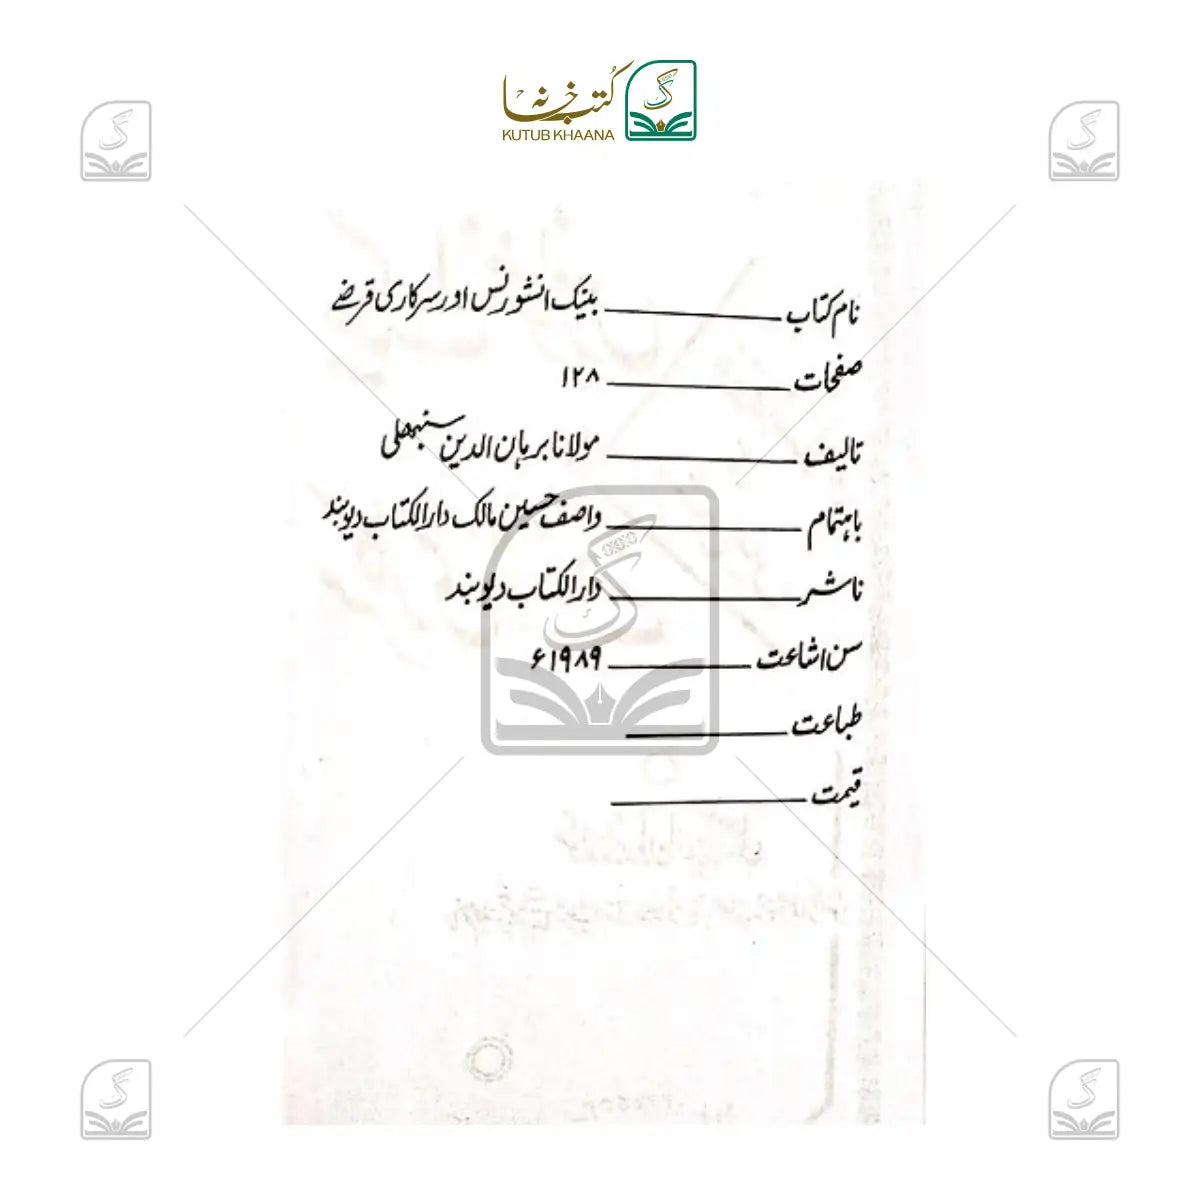 کتب خانہ
KUTUB KHAANA
نام کتاب ـــــــــ بینک انشورنس اور سرکاری قرضے
صفحات ـــــــــ ۱۲۸
تالیف ـــــــــ مولانا برہان الدین سنبھلی
باہتمام ـــــــــ واصف حسین مالک دارالکتاب دیوبند
ناشر ـــــــــ دارالکتاب دیوبند
سن اشاعت ـــــــــ ۱۹۸۹ء
طباعت ـــــــــ
قیمت ـــــــــ